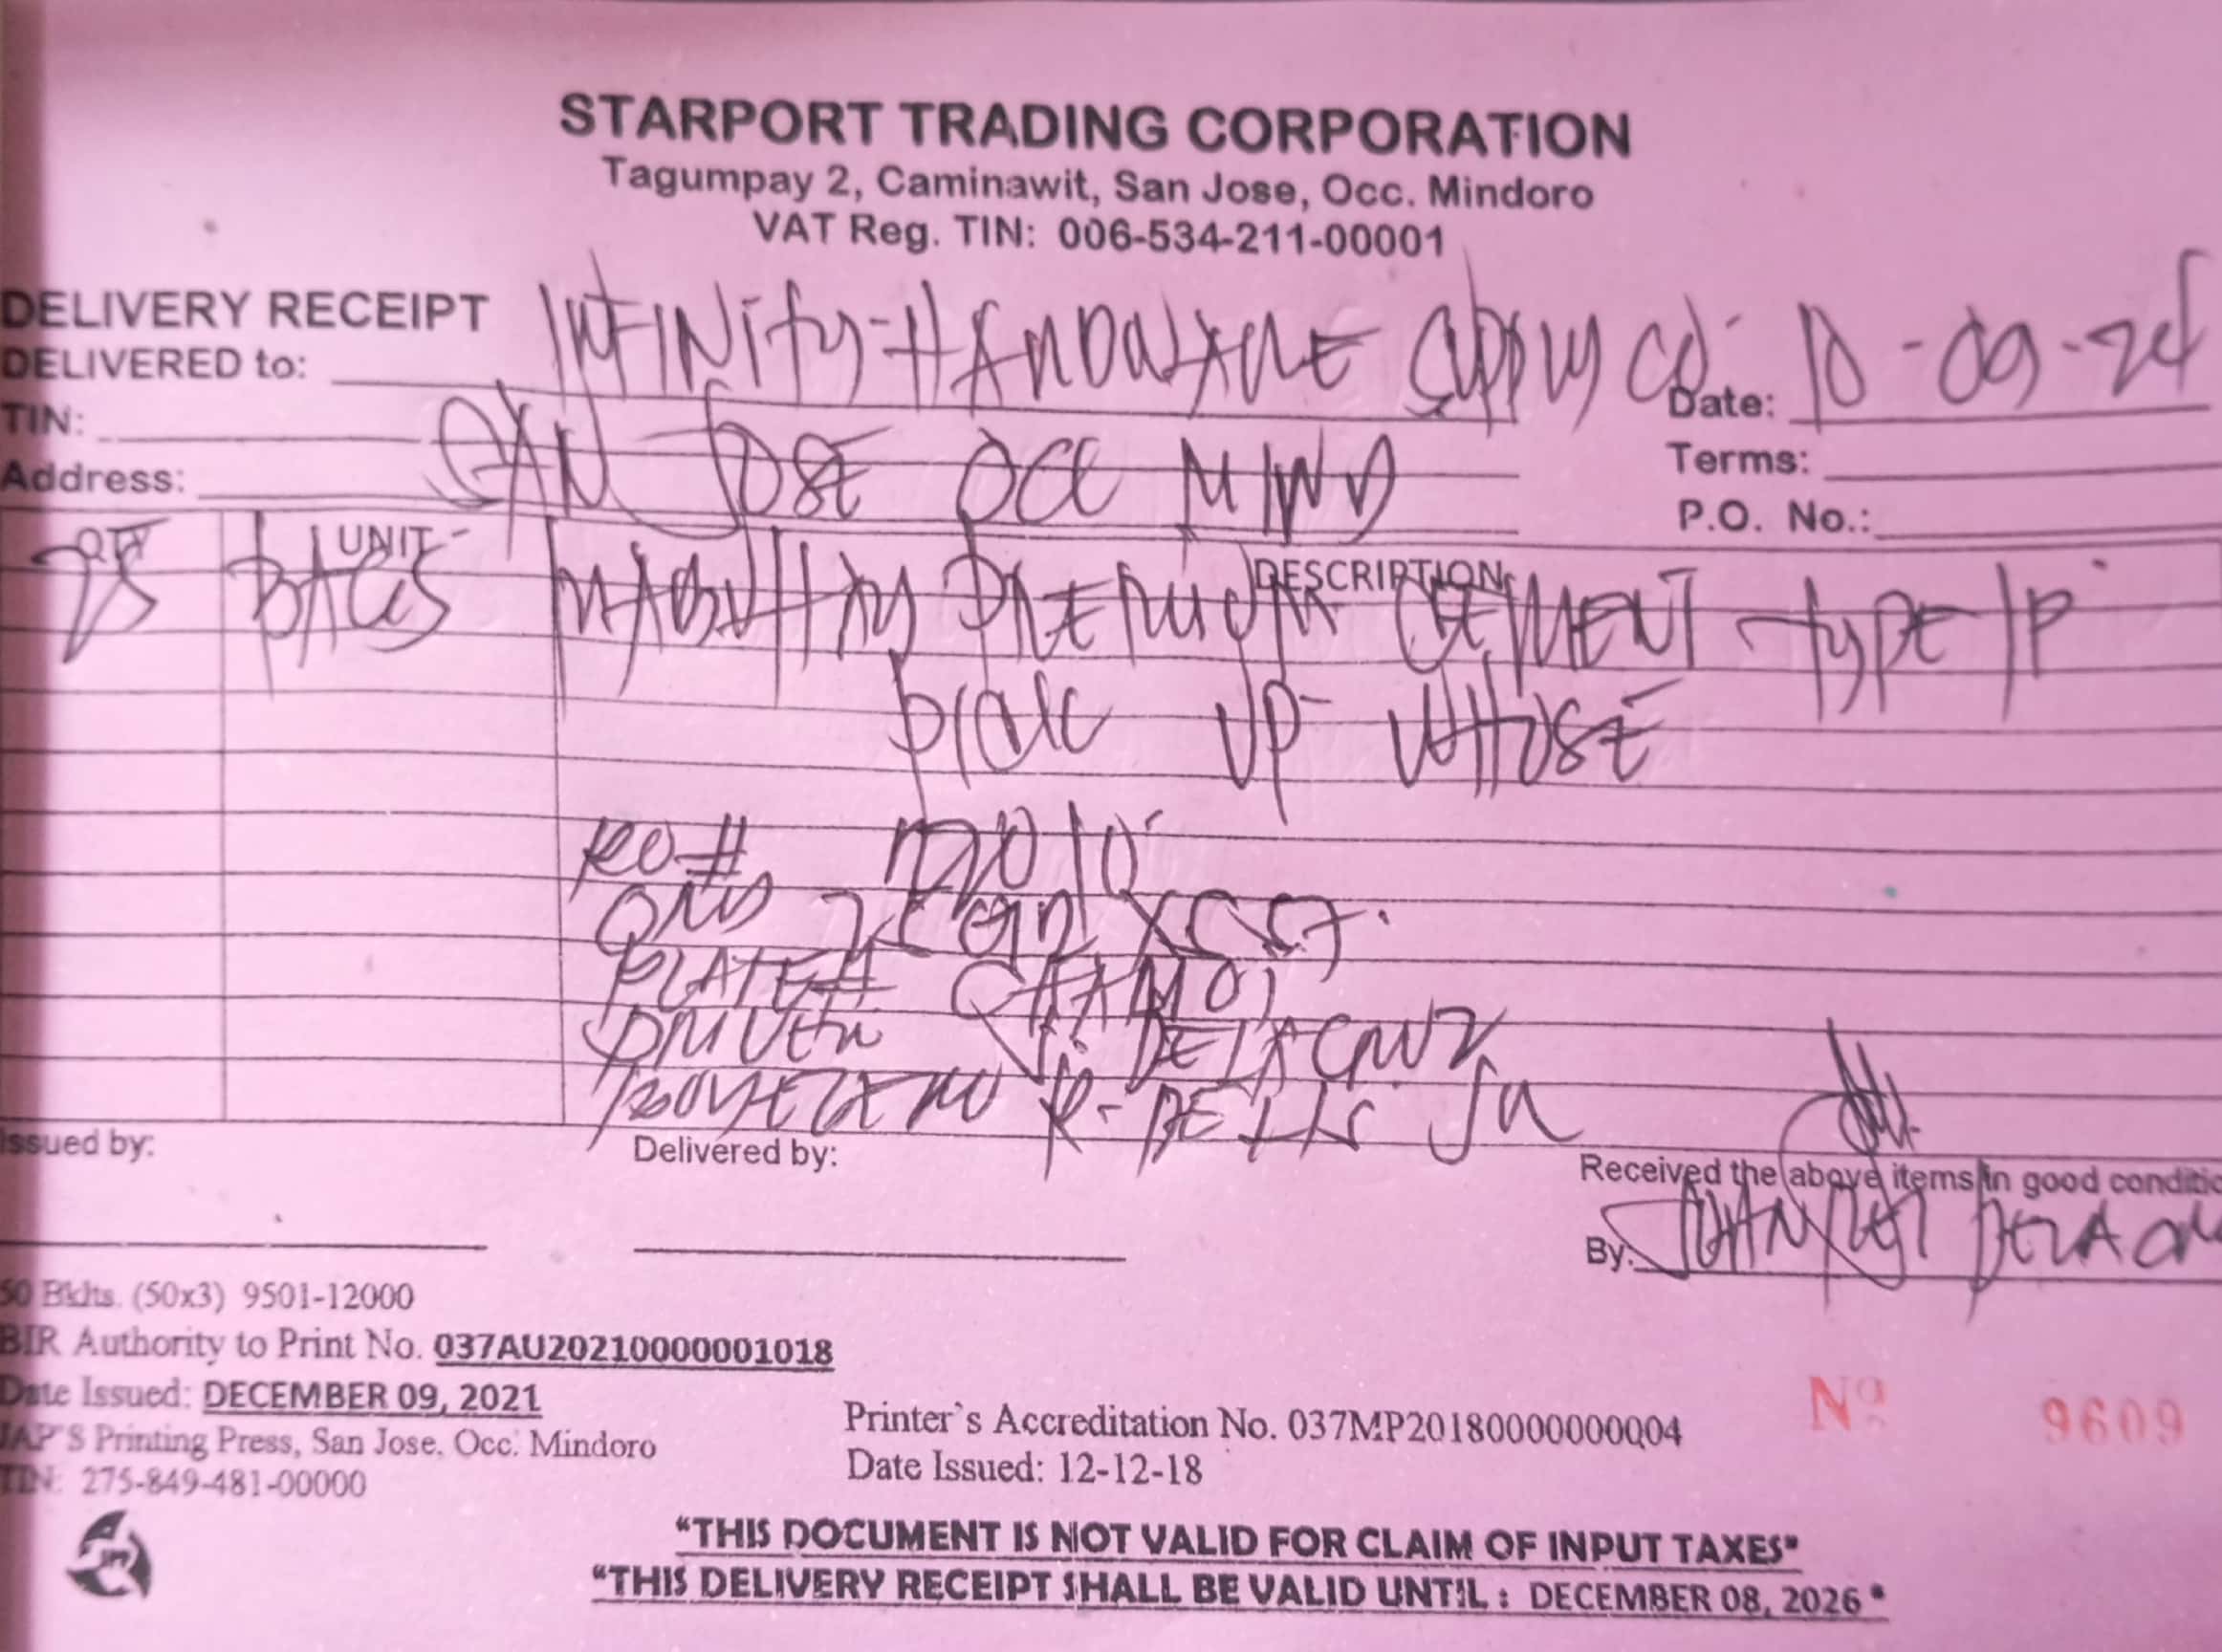 STARPORT TRADING CORPORATION
Tagumpay 2, Caminawit, San Jose, Occ. Mindoro
VAT Reg. TIN: 006-534-211-00001
DELIVERY RECEIPT
DELIVERED to: INFINITY HARDWARE SUPPLY CO. Date: 10-09-24
TIN:
Address: SAN JOSE OCC MIND Terms:
P.O. No.:
QTY UNIT DESCRIPTION
75 BAGS CEMENT TYPE 1P
PICK UP WHOSE
RO#
PLATE#
DRIVER DELACRUZ
JR
Issued by: Delivered by:
Received the above items in good conditio
By:
50 Bklts. (50x3) 9501-12000
BIR Authority to Print No. 037AU20210000001018
Date Issued: DECEMBER 09, 2021
JAP'S Printing Press, San Jose, Occ. Mindoro
TIN: 275-849-481-00000
Printer's Accreditation No. 037MP20180000000004
Date Issued: 12-12-18
Nº 9609
"THIS DOCUMENT IS NOT VALID FOR CLAIM OF INPUT TAXES"
"THIS DELIVERY RECEIPT SHALL BE VALID UNTIL : DECEMBER 08, 2026"